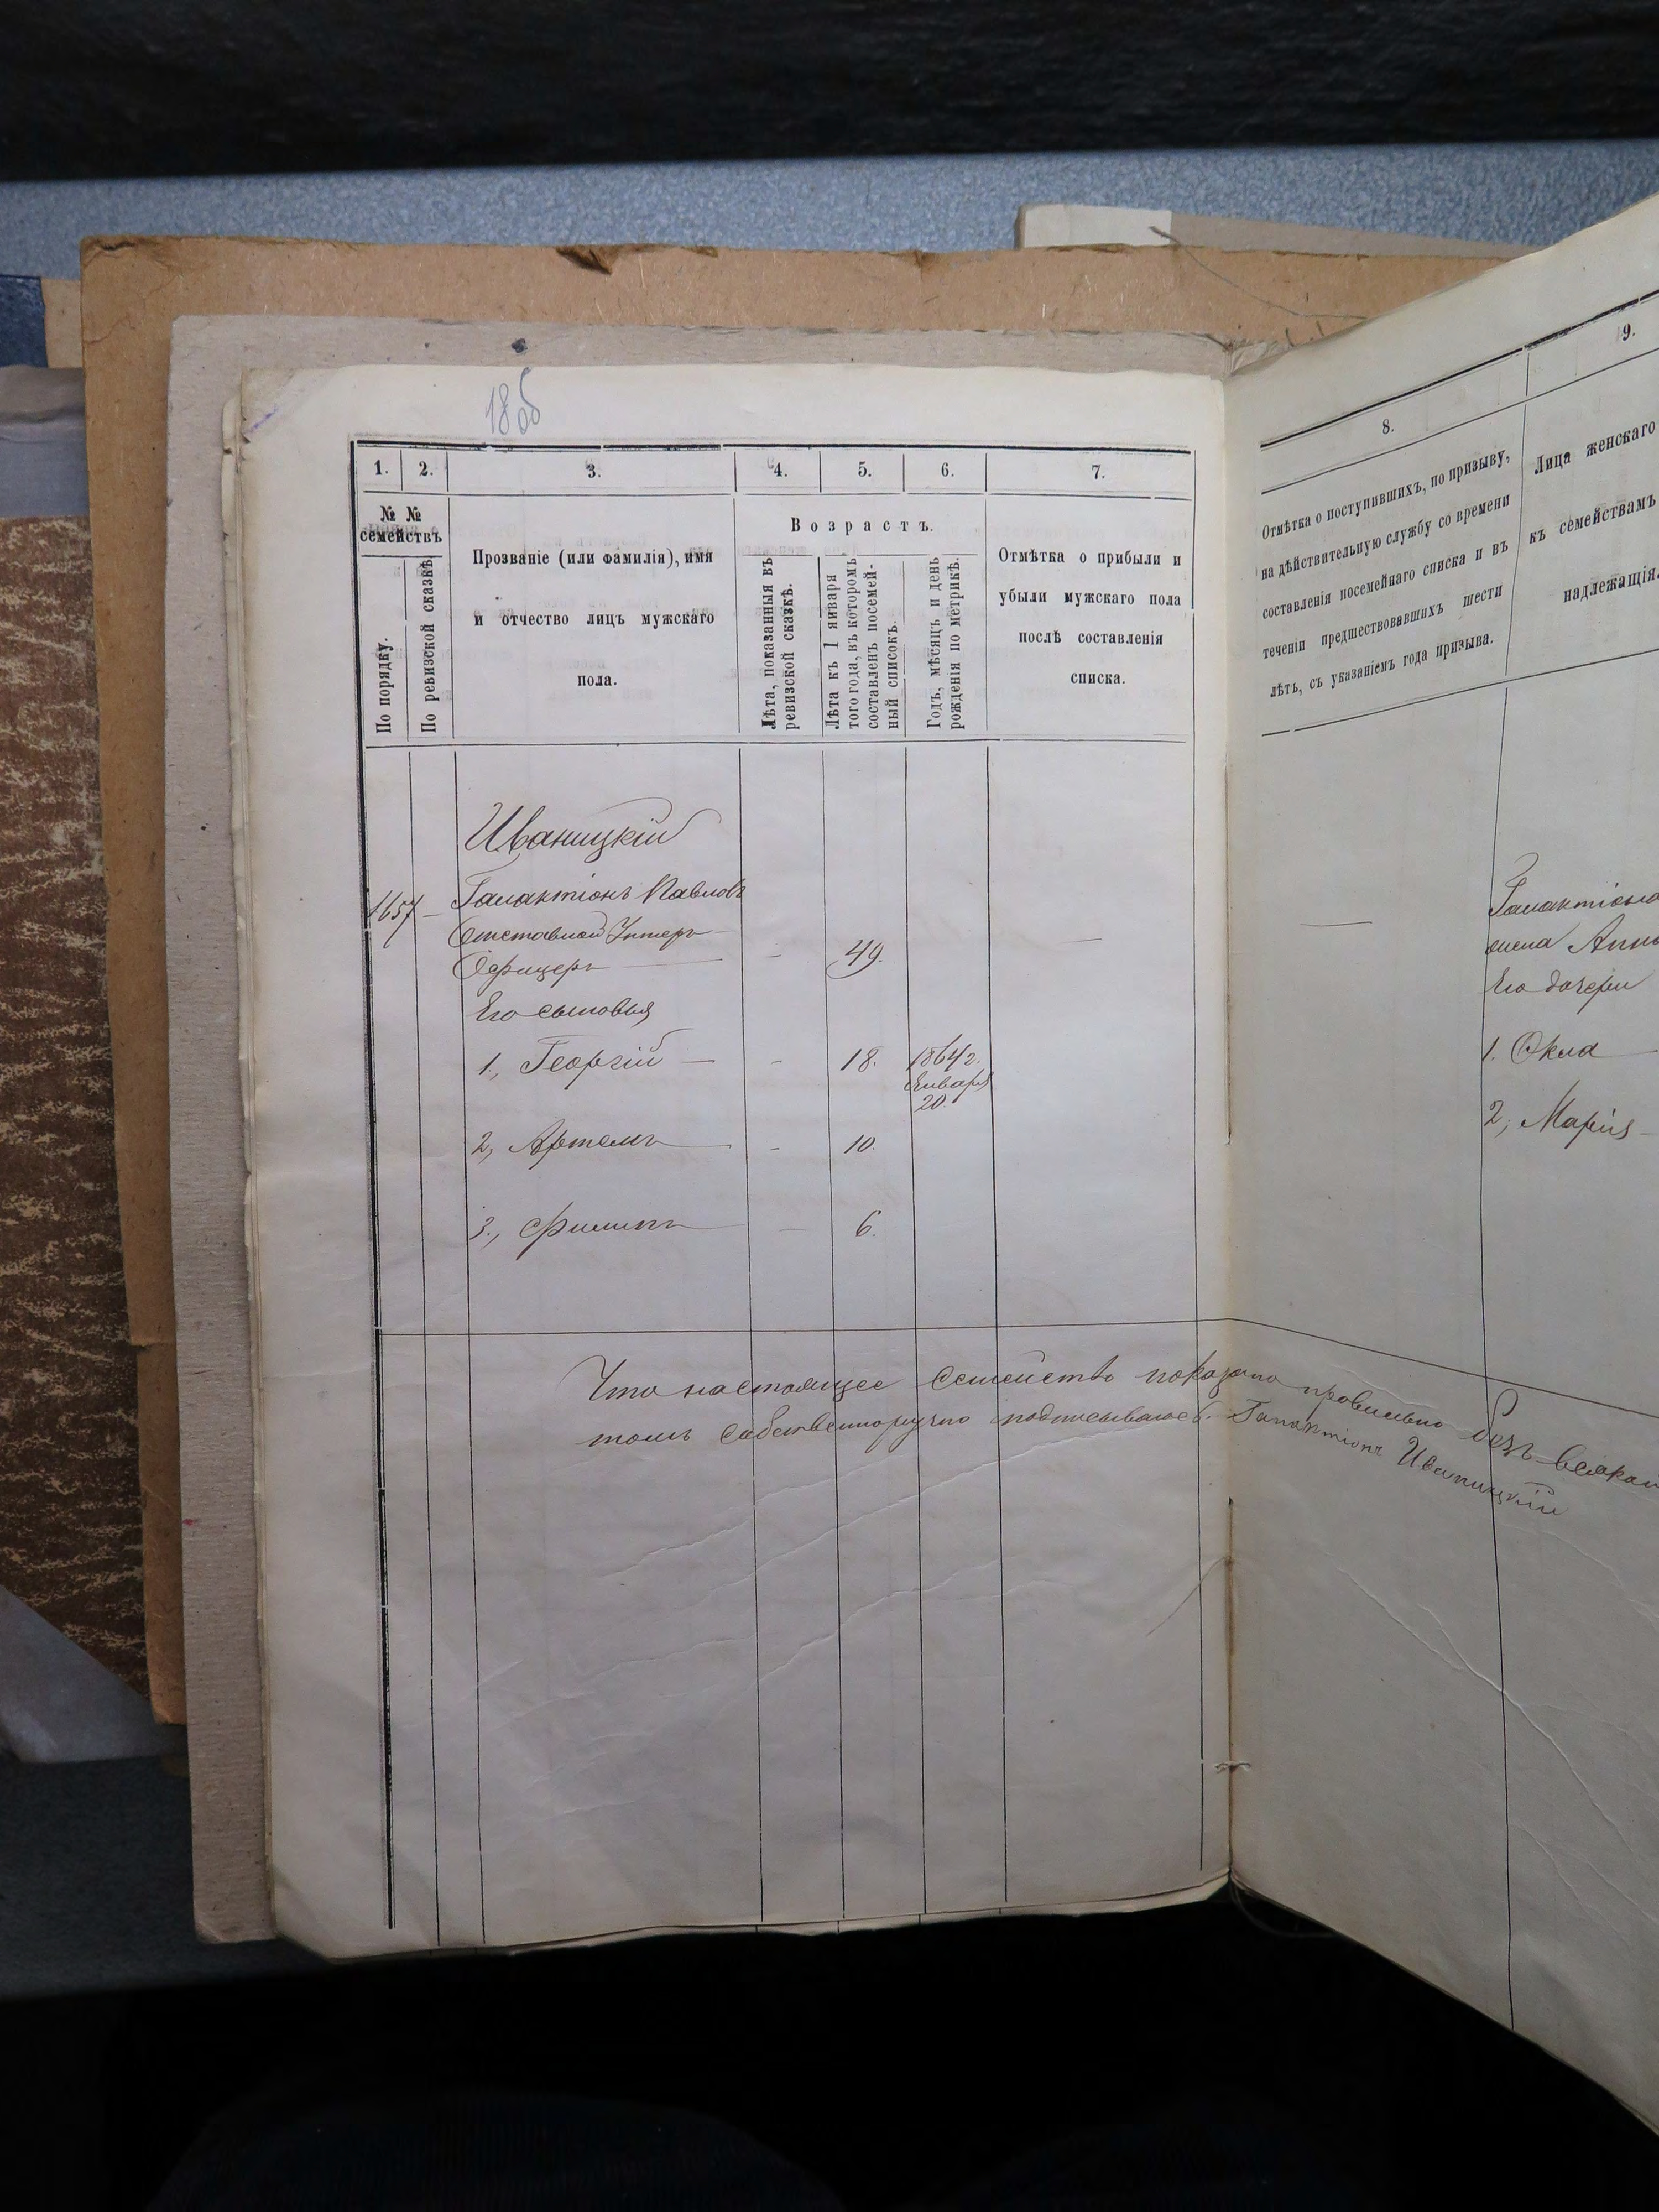 18об
1. 2. 3. 4. 5. 6. 7.
№ №
семействъ
По порядку.
По ревизской сказкѣ
Прозваніе (или фамилія), имя
и отчество лицъ мужскаго
пола.
Возрастъ.
Лѣта, показанныя въ
ревизской сказкѣ.
Лѣта къ 1 января
того года, въ которомъ
составленъ посемей-
ный списокъ.
Годъ, мѣсяцъ и день
рожденія по метрикѣ.
Отмѣтка о прибыли и
убыли мужскаго пола
послѣ составленія
списка.
Иваницкій
1657 – Галактіонъ Павловъ
Отставной Унтеръ
Офицеръ – 49. –
Его сыновья
1., Георгій – - 18. 1864 г.
Января
20.
2, Артемъ – - 10.
3., Филипъ – - 6.
Что настоящее семейство показано правильно безъ всякаго
томъ собственноручно подписываюсь. Галактіонъ Иваницкій
8. 9.
Отмѣтка о поступившихъ, по призыву,
на дѣйствительную службу со времени
составленія посемейнаго списка и въ
теченіи предшествовавшихъ шести
лѣтъ, съ указаніемъ года призыва.
Лица женскаго
къ семействамъ
надлежащія.
–
Галактіона
жена Анна
Его дочери
1. Окла
2, Марія –